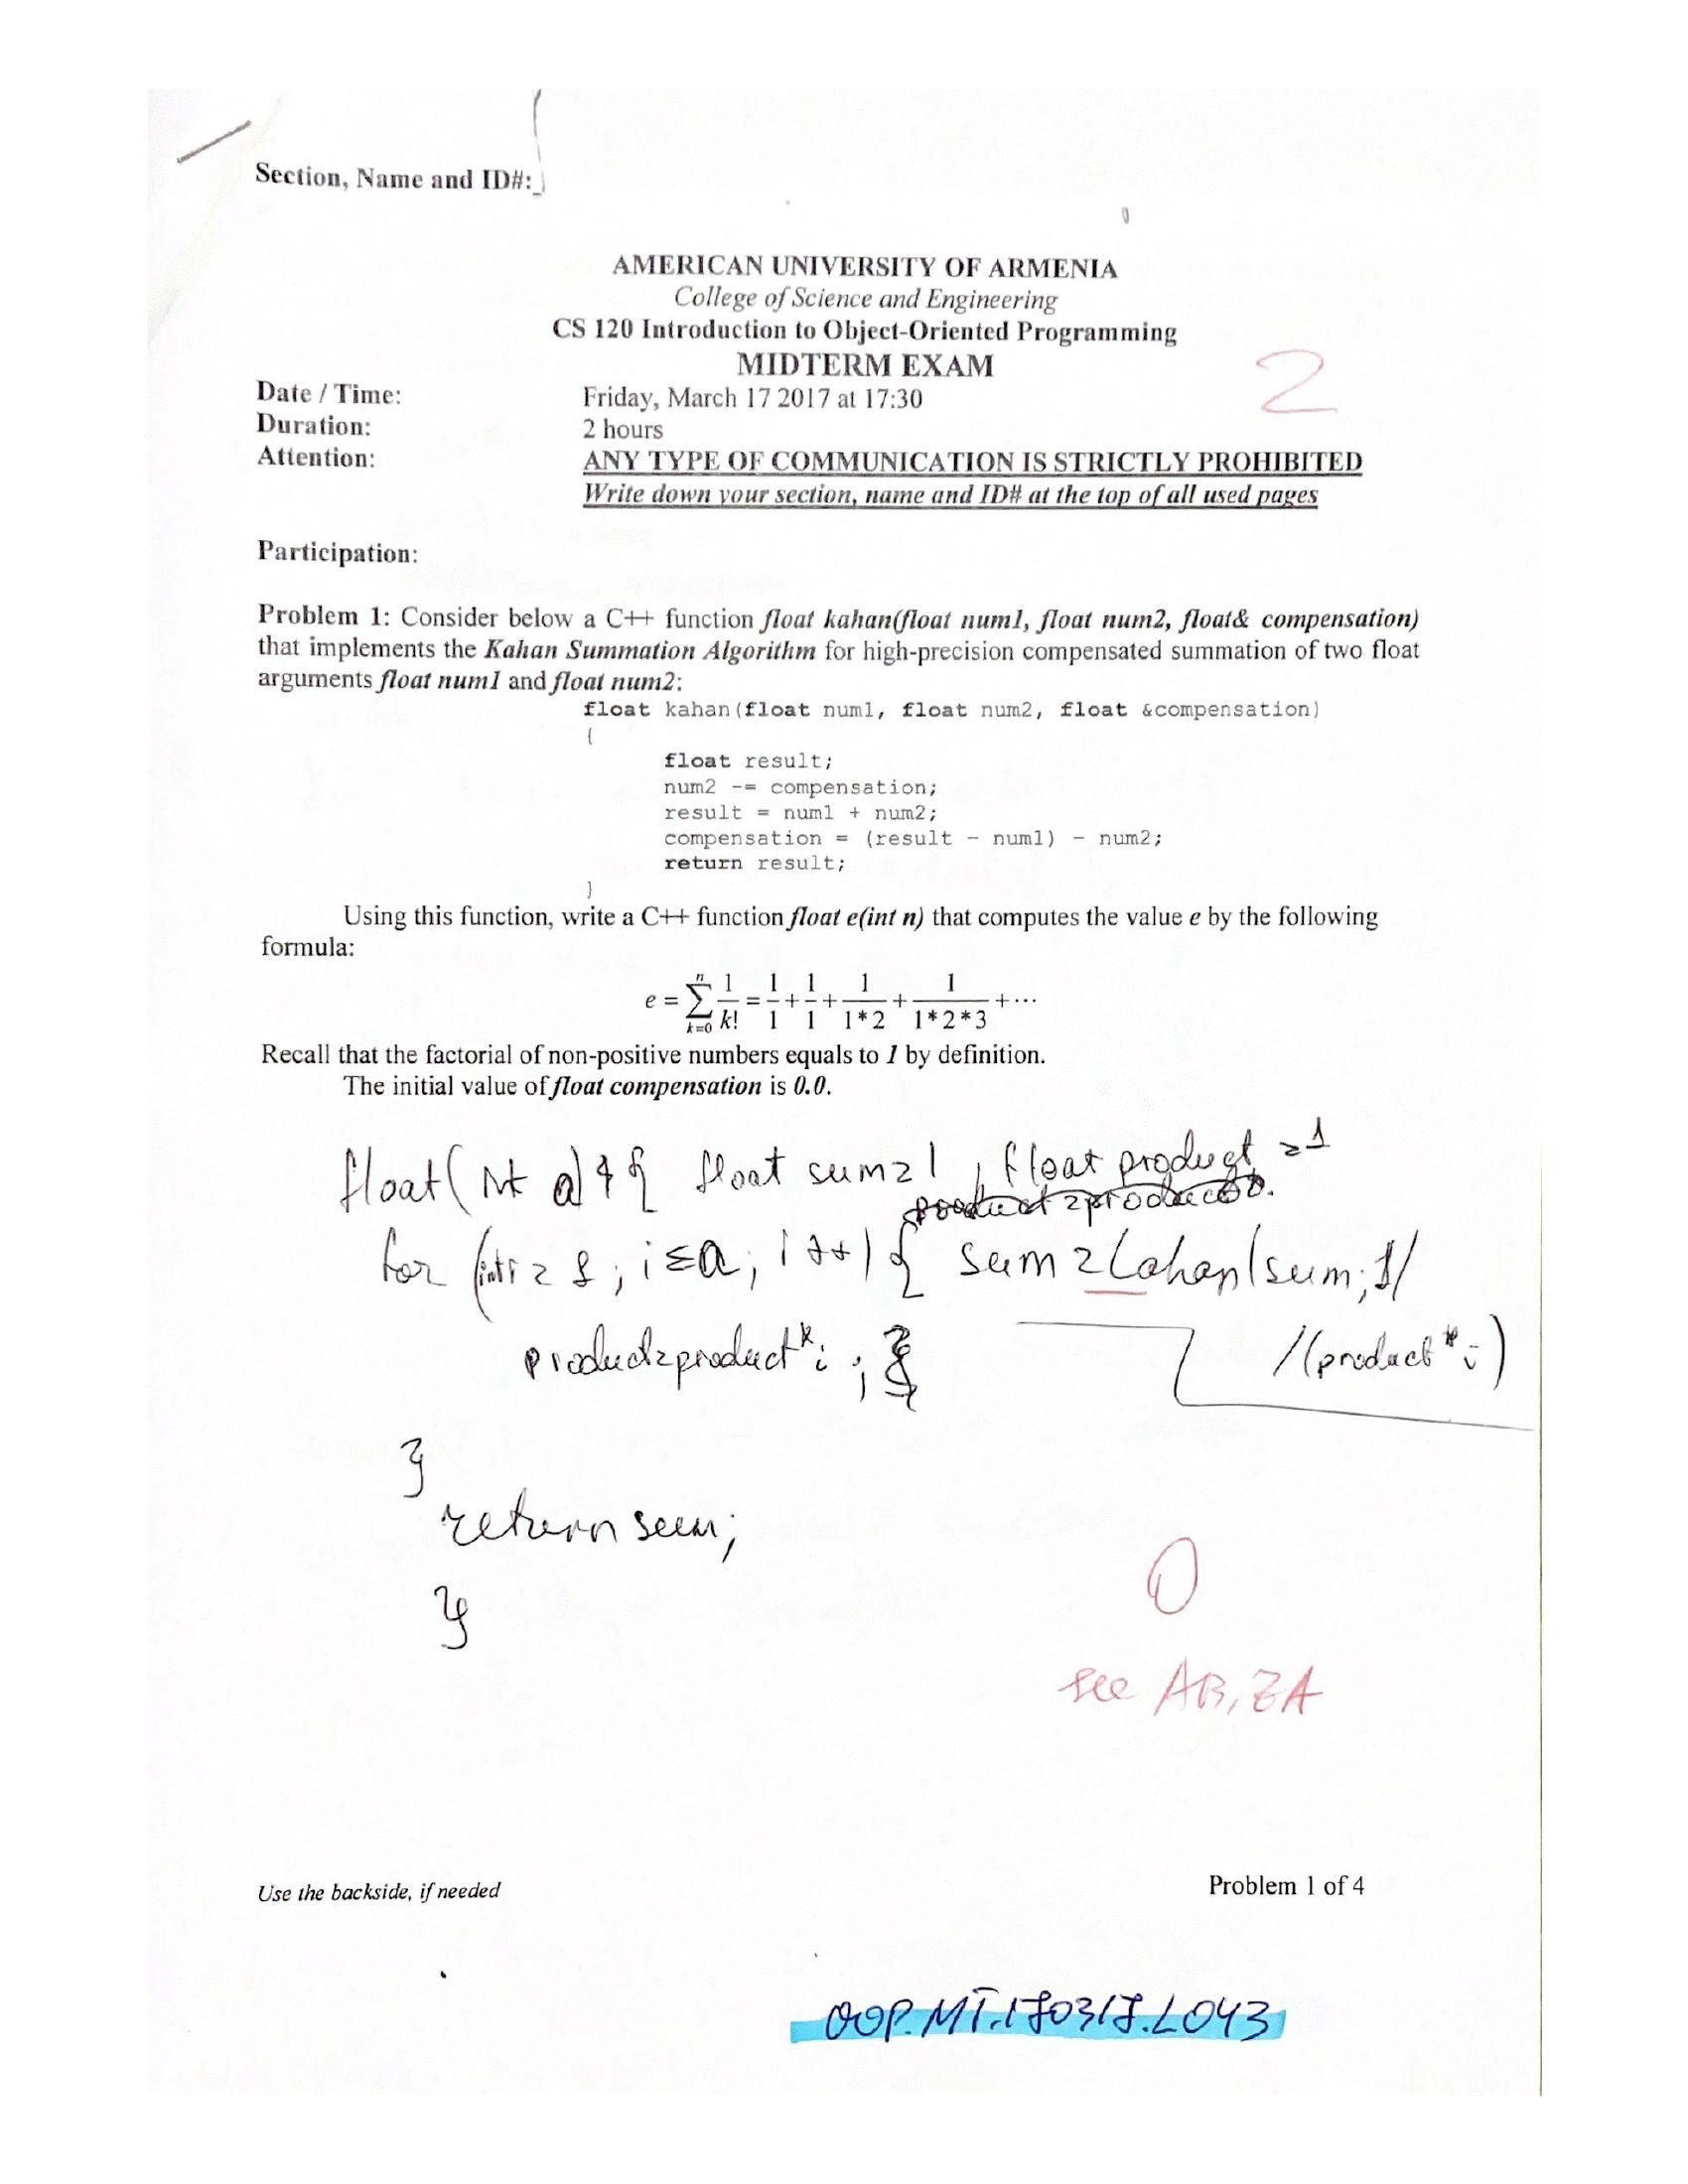 Section, Name and ID#:
AMERICAN UNIVERSITY OF ARMENIA
College of Science and Engineering
CS 120 Introduction to Object-Oriented Programming
MIDTERM EXAM
2
Date / Time: Friday, March 17 2017 at 17:30
Duration: 2 hours
Attention: ANY TYPE OF COMMUNICATION IS STRICTLY PROHIBITED
Write down your section, name and ID# at the top of all used pages
Participation:
Problem 1: Consider below a C++ function float kahan(float num1, float num2, float& compensation)
that implements the Kahan Summation Algorithm for high-precision compensated summation of two float
arguments float num1 and float num2:
float kahan(float num1, float num2, float &compensation)
{
float result;
num2 -= compensation;
result = num1 + num2;
compensation = (result - num1) - num2;
return result;
}
Using this function, write a C++ function float e(int n) that computes the value e by the following
formula:
e = \sum_{k=0}^{n} \frac{1}{k!} = \frac{1}{1} + \frac{1}{1} + \frac{1}{1*2} + \frac{1}{1*2*3} + ⋯
Recall that the factorial of non-positive numbers equals to 1 by definition.
The initial value of float compensation is 0.0.
float(int a) { float sum=1, float product =1
for (int i = 1; i ≤ a; i++) { sum = kahan(sum; 1/
/(product * i)
product=product * i ;
}
return sum;
}
0
see AB, ZA
Use the backside, if needed
Problem 1 of 4
OOP.MT.170317.L043